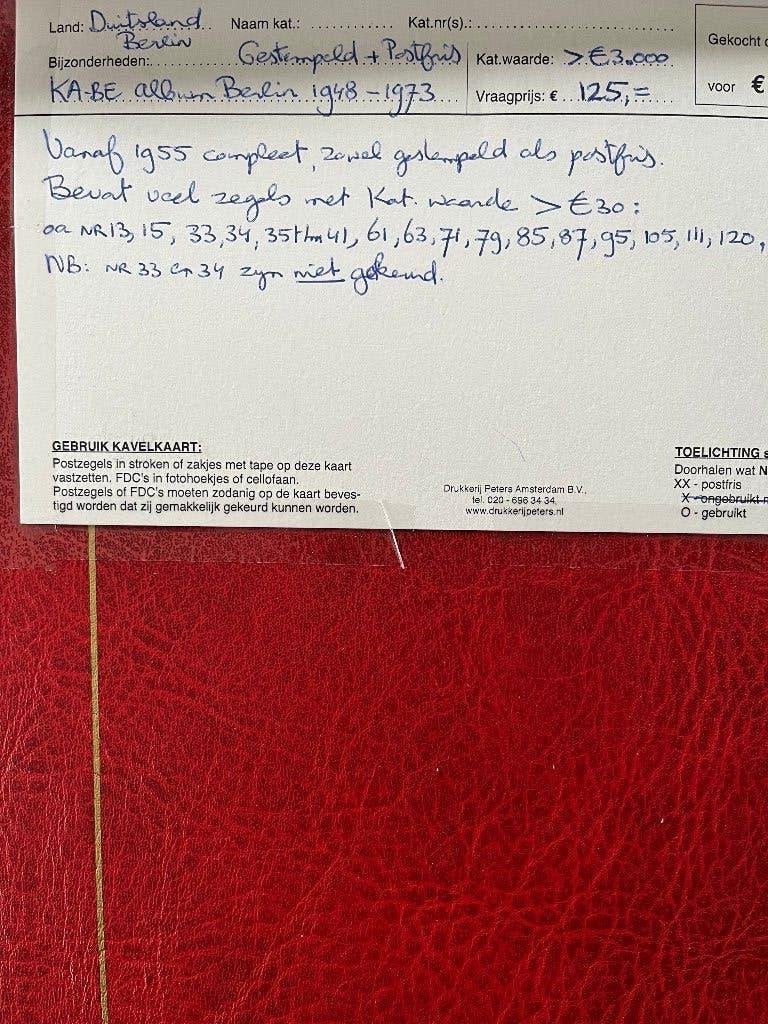 Land: Duitsland Naam kat.: ............ Kat.nr(s).:
Berlin
Bijzonderheden: Gestempeld + Postfris Kat.waarde: > € 3.000
KA-BE album Berlin 1948 - 1973 Vraagprijs: € 125,=
Gekocht
voor €
Vanaf 1955 compleet, zowel gestempeld als postfris.
Bevat veel zegels met Kat. waarde > € 30 :
oa NR 13, 15, 33, 34, 35 t/m 41, 61, 63, 71, 79, 85, 87, 95, 105, 111, 120,
NB: NR 33 en 34 zyn niet gekeurd.
GEBRUIK KAVELKAART:
Postzegels in stroken of zakjes met tape op deze kaart
vastzetten. FDC's in fotohoekjes of cellofaan.
Postzegels of FDC's moeten zodanig op de kaart beves-
tigd worden dat zij gemakkelijk gekeurd kunnen worden.
Drukkerij Peters Amsterdam B.V.,
tel. 020 - 696 34 34,
www.drukkerijpeters.nl
TOELICHTING
Doorhalen wat
XX - postfris
X - ongebruikt
O - gebruikt